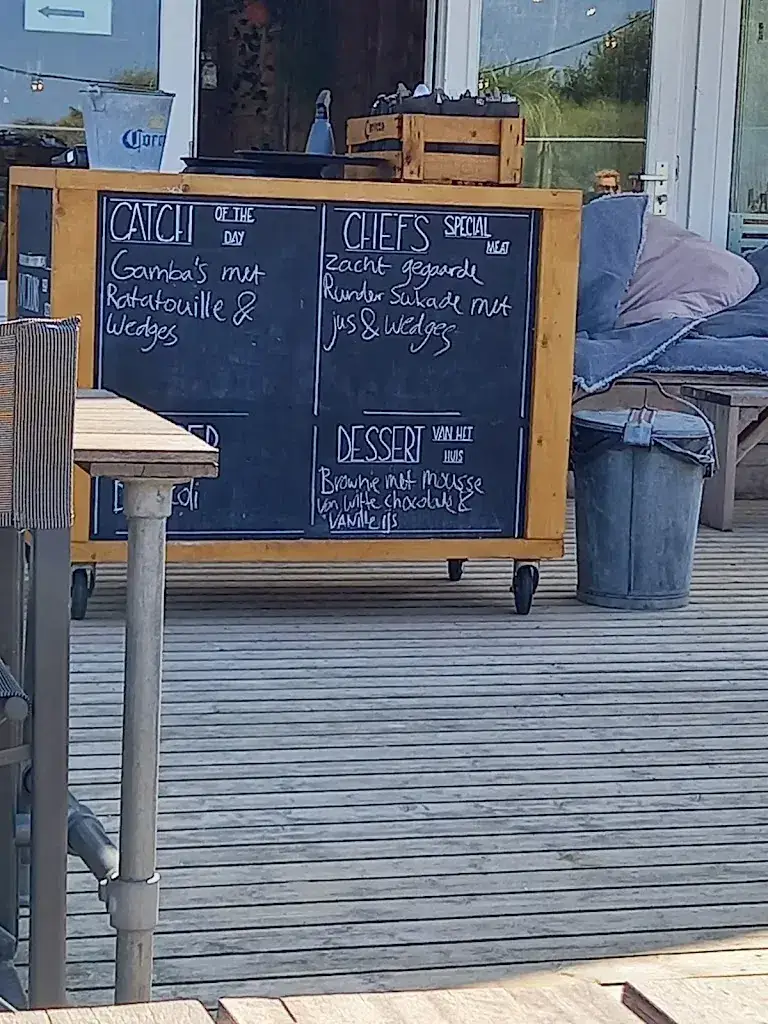 Corona
CATCH OF THE
DAY
Gamba's met
Ratatouille &
Wedges
CHEF'S SPECIAL
MEAT
Zacht gegaarde
Runder Sukade met
jus & Wedges
DESSERT VAN HET
HUIS
Brownie met mousse
van witte chocolade &
VANILLE IJS